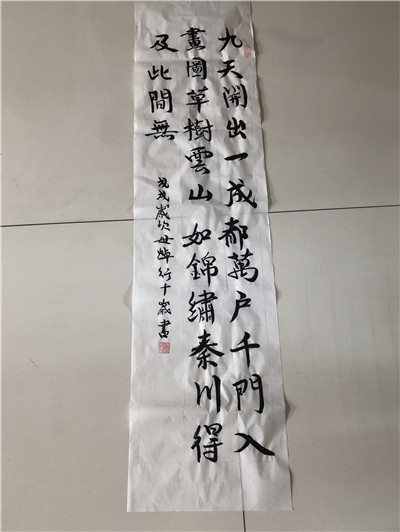 九天開出一成都萬户千門入
畫圖草樹雲山如錦繡秦川得
及此間無
戊戌歲次 行十歲書